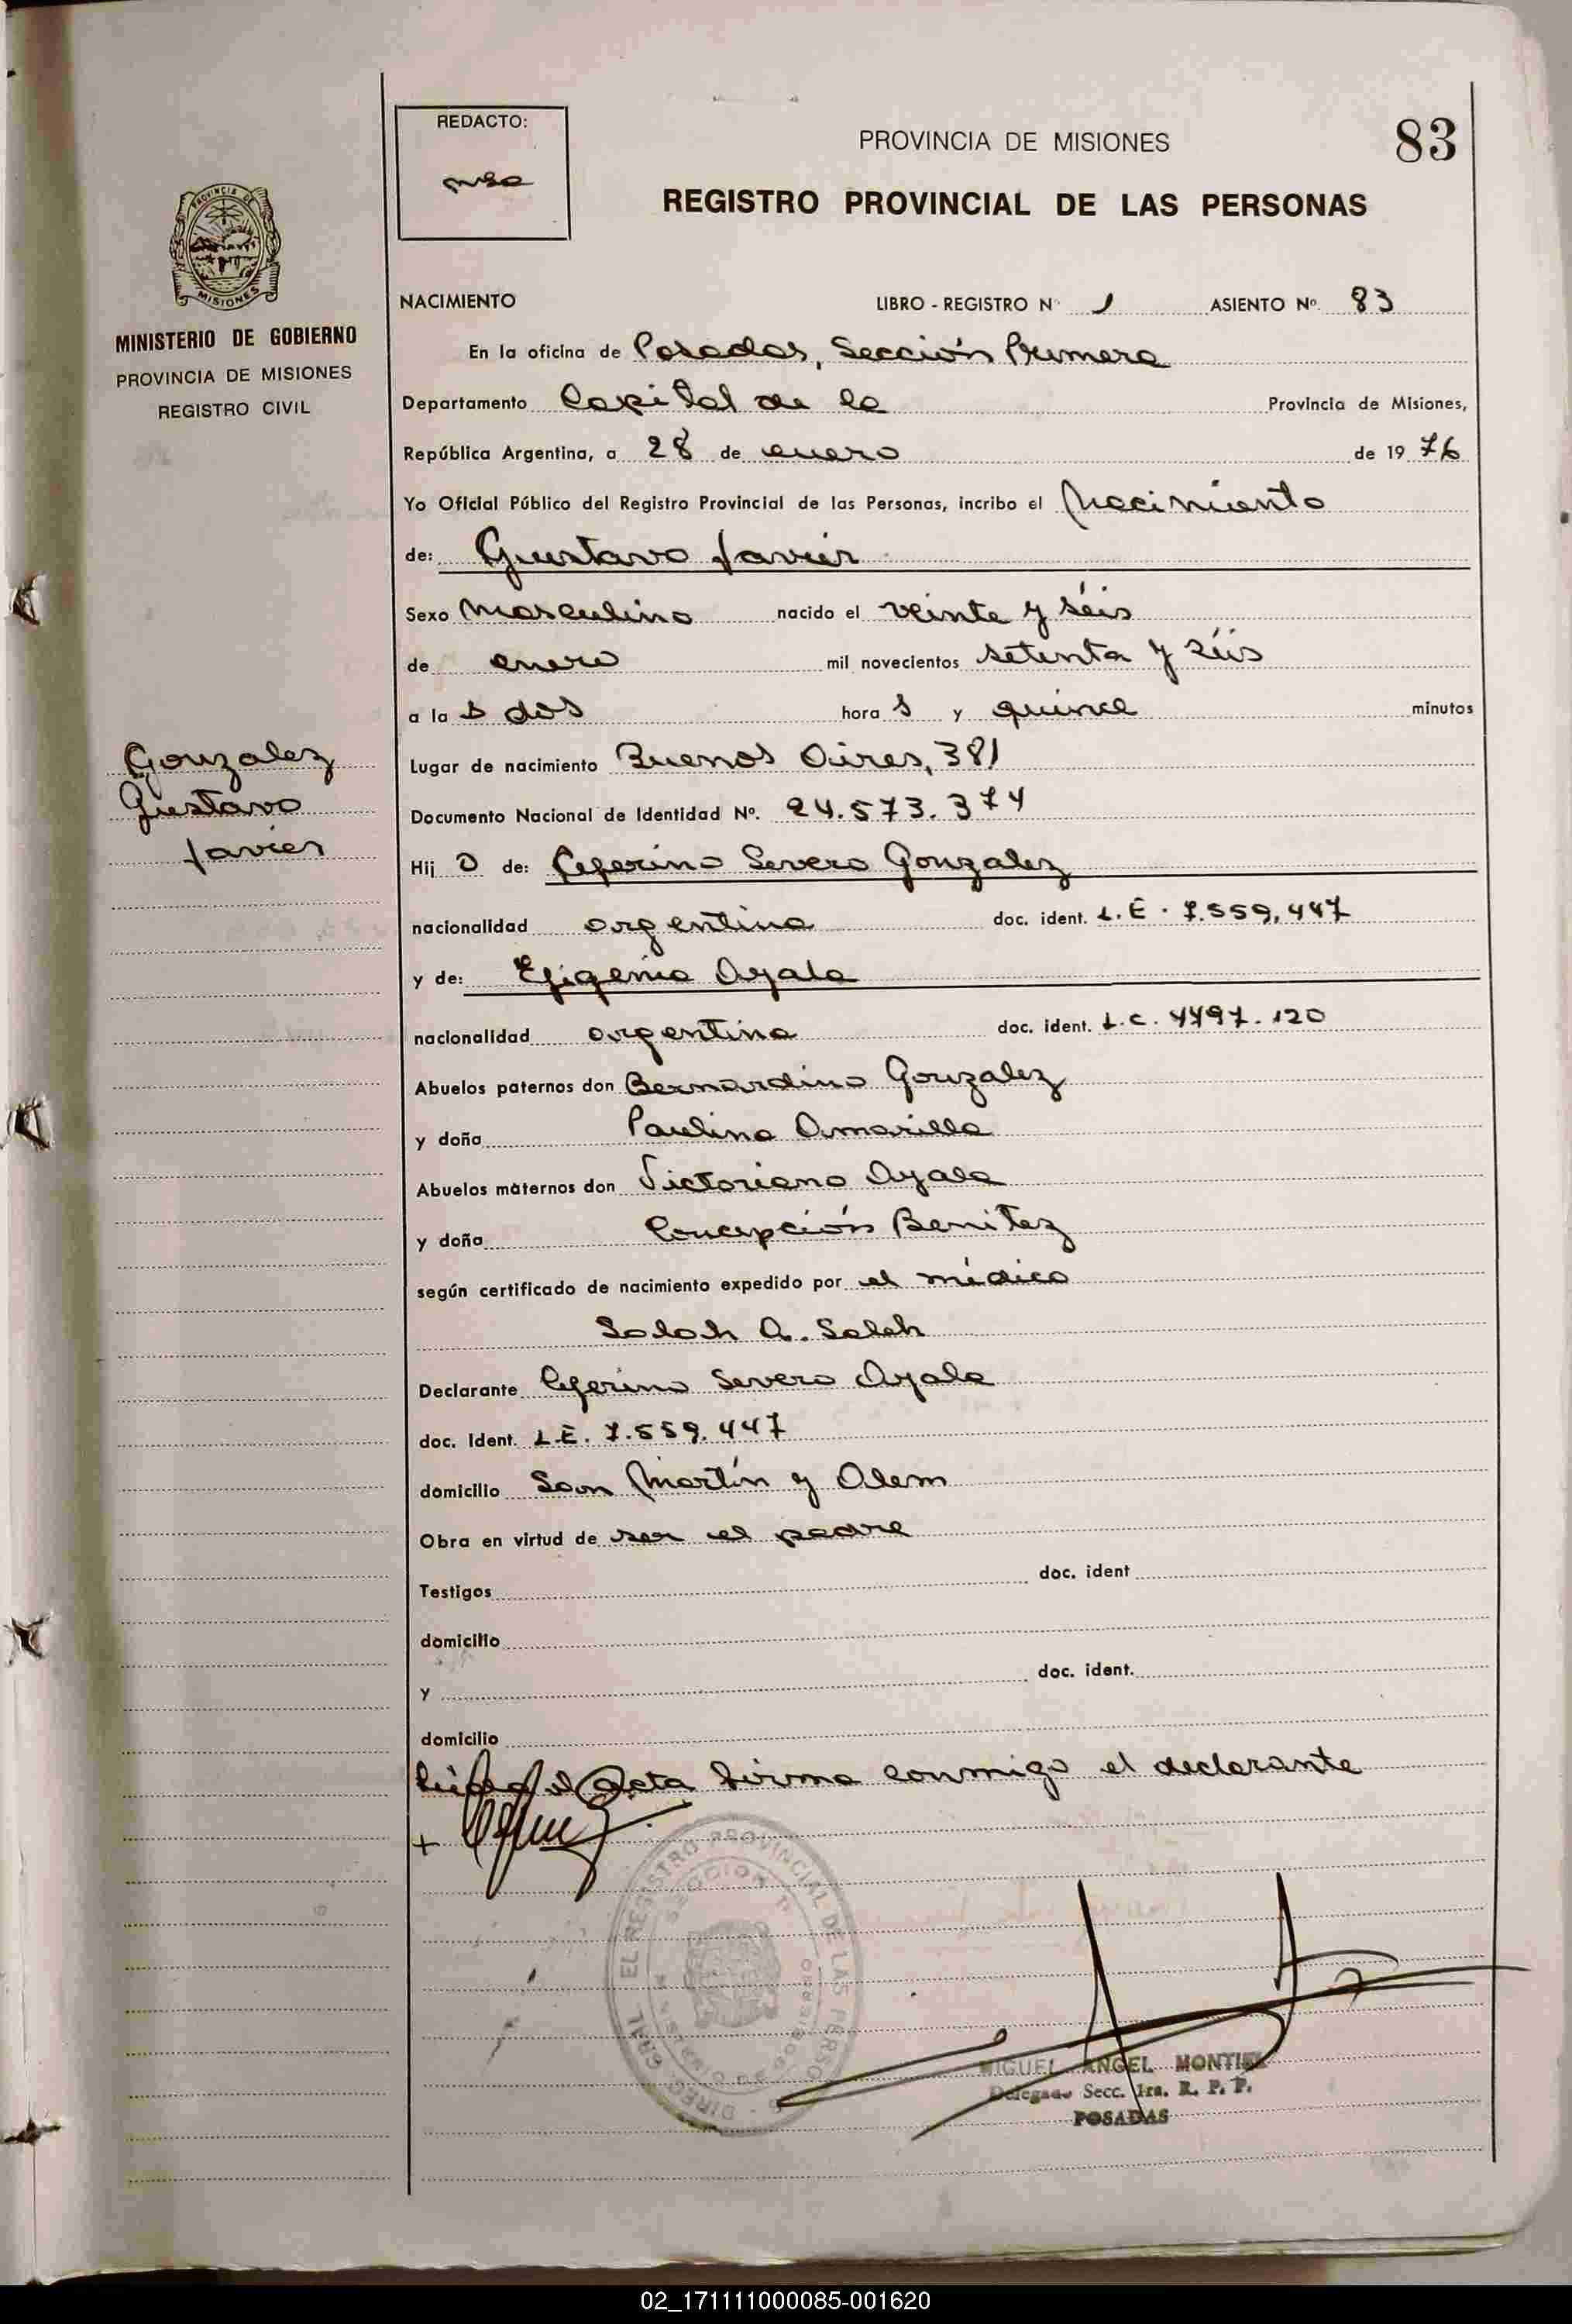 REDACTO:
PROVINCIA DE MISIONES
83
REGISTRO PROVINCIAL DE LAS PERSONAS
PROVINCIA DE
MISIONES
MINISTERIO DE GOBIERNO
PROVINCIA DE MISIONES
REGISTRO CIVIL
NACIMIENTO LIBRO - REGISTRO Nº 1 ASIENTO Nº 83
En la oficina de Posadas, Sección Primera
Departamento Capital de la Provincia de Misiones,
República Argentina, a 28 de enero de 1976
Yo Oficial Público del Registro Provincial de las Personas, incribo el Nacimiento
de: Gustavo Javier
Sexo Masculino nacido el veinte y séis
de enero mil novecientos setenta y séis
a la s dos hora s y quince minutos
Gonzalez
Gustavo
Javier
Lugar de nacimiento Buenos Aires, 381
Documento Nacional de Identidad Nº. 24.573.374
Hij o de: Ceferino Severo Gonzalez
nacionalidad argentina doc. ident. L.E. 7.559.447
y de: Efigenia Ayala
nacionalidad argentina doc. ident. L.C. 4497.120
Abuelos paternos don Bernardino Gonzalez
y doña Paulina Amarilla
Abuelos maternos don Victoriano Ayala
y doña Concepción Benitez
según certificado de nacimiento expedido por el médico
Salah A. Saleh
Declarante Ceferino Severo Ayala
doc. Ident. L.E. 7.559.447
domicilio San Martín y Alem
Obra en virtud de ser el padre
Testigos doc. ident
domicilio
y doc. ident.
domicilio
Leida el Acta firma conmigo el declarante
DIREC. GRAL. EL REGISTRO PROVINCIAL DE LAS PERSO
SECCION
MIGUEL ANGEL MONTIEL
Delegado Secc. 1ra. R. P. P.
POSADAS
02_171111000085-001620